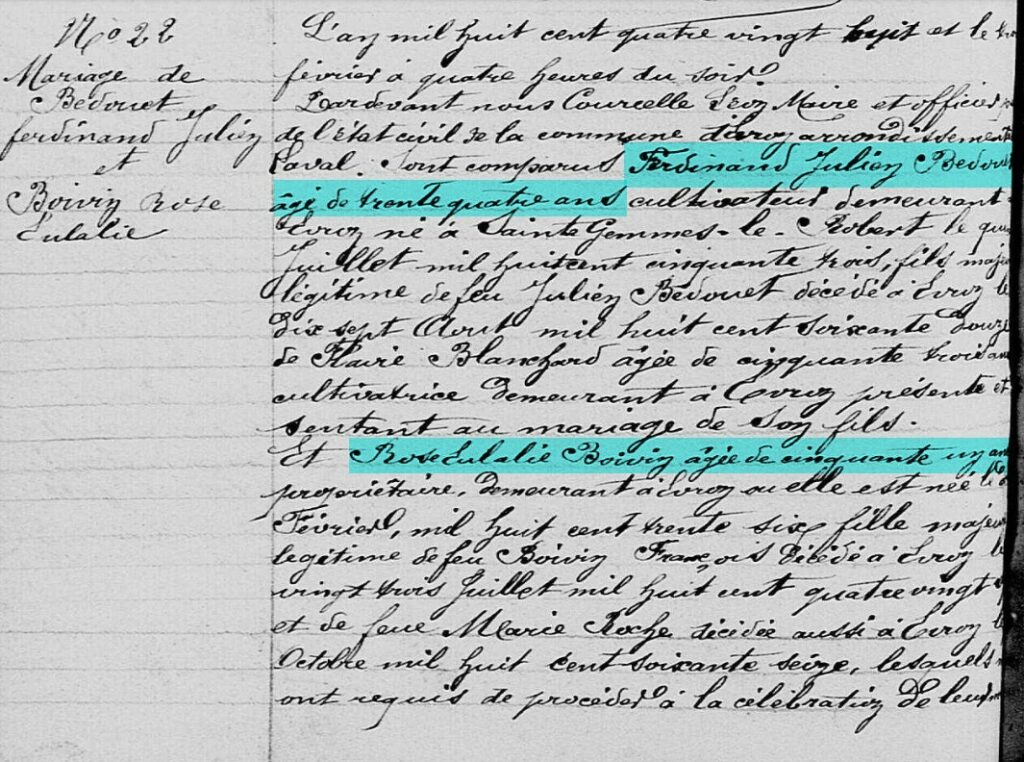 No 22
Mariage de
Bedouet
ferdinand Julien
et
Boivin Rose
Eulalie
L'an mil huit cent quatre vingt huit et le
février à quatre heures du soir
Pardevant nous Courcelle Léon Maire et officier
de l'état civil de la commune d'Evron arrondissement
Laval. Sont comparus Ferdinand Julien Bedouet
âgé de trente quatre ans cultivateur demeurant
Evron né à Sainte Gemmes-le-Robert le
Juillet mil huit cent cinquante trois, fils
légitime de feu Julien Bedouet décédé à Evron le
dix sept Aout mil huit cent soixante douze
de Blanchard âgée de cinquante trois ans
cultivatrice demeurant à Evron présente et
sentant au mariage de son fils.
Et Rose Eulalie Boivin âgée de cinquante un an
propriétaire, demeurant à Evron ou elle est née le
Février, mil huit cent trente six fille
légitime de feu Boivin François décédé à Evron le
vingt trois Juillet mil huit cent quatre vingt
et de feue Marie Roche décédée aussi à Evron
Octobre mil huit cent soixante seize, lesquels
ont requis de procéder à la célébration de leur